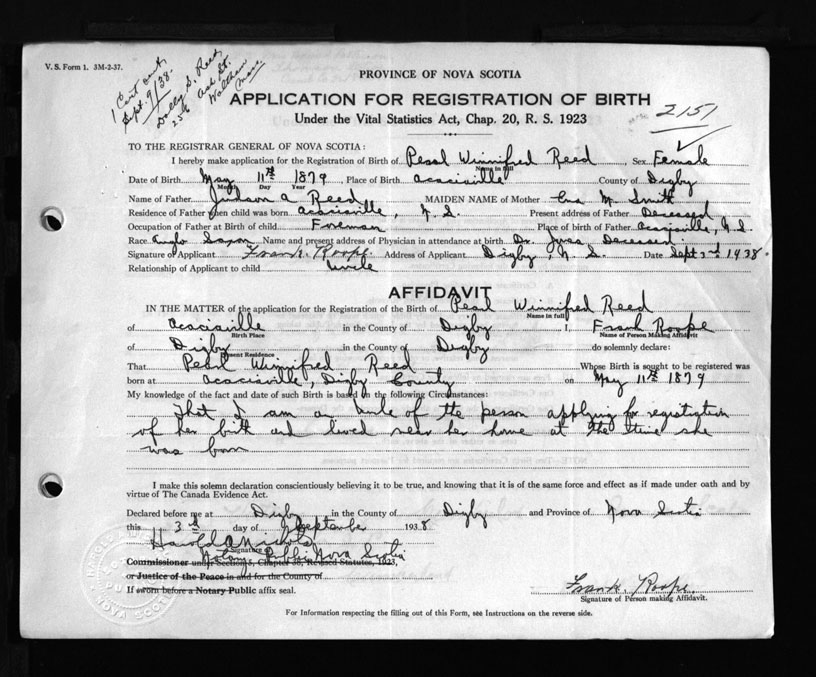 V. S. Form 1. 3M-2-37.
1 Cert out
Sept. 9/38.
Dolly S. Reed
256 Ash St.
Waltham
Mass.
PROVINCE OF NOVA SCOTIA
APPLICATION FOR REGISTRATION OF BIRTH
2151
Under the Vital Statistics Act, Chap. 20, R. S. 1923
TO THE REGISTRAR GENERAL OF NOVA SCOTIA:
I hereby make application for the Registration of Birth of Pearl Winnifred Reed Sex Female
Name in full
Date of Birth May 11th 1879, Place of Birth Acaciaville County of Digby
Month Day Year
Name of Father Judson A Reed MAIDEN NAME of Mother M. Smith
Residence of Father when child was born Acaciaville, N. S. Present address of Father Deceased
Occupation of Father at Birth of child Foreman Place of birth of Father Acaciaville, N. S.
Race Anglo Saxon Name and present address of Physician in attendance at birth Dr. Jones Deceased
Signature of Applicant Frank Roope Address of Applicant Digby, N. S. Date Sept 3rd 1938
Relationship of Applicant to child Uncle
AFFIDAVIT
IN THE MATTER of the application for the Registration of the Birth of Pearl Winnifred Reed
Name in full
of Acaciaville in the County of Digby I, Frank Roope
Birth Place Name of Person Making Affidavit
of Digby in the County of Digby do solemnly declare:
Present Residence
That Pearl Winnifred Reed Whose Birth is sought to be registered was
born at Acaciaville, Digby County on May 11th 1879
My knowledge of the fact and date of such Birth is based on the following Circumstances:
That I am an uncle of the person applying for registration
of her birth and lived near her home at the time she
was born
I make this solemn declaration conscientiously believing it to be true, and knowing that it is of the same force and effect as if made under oath and by
virtue of The Canada Evidence Act.
Declared before me at Digby in the County of Digby and Province of Nova Scotia
this 3rd day of September 1938
Harold A Nichols
Signature of
Notary Public Nova Scotia
Commissioner under Section 5, Chapter 38, Revised Statutes, 1923,
or Justice of the Peace in and for the County of
If sworn before a Notary Public affix seal.
Frank Roope
Signature of Person making Affidavit.
For Information respecting the filling out of this Form, see Instructions on the reverse side.